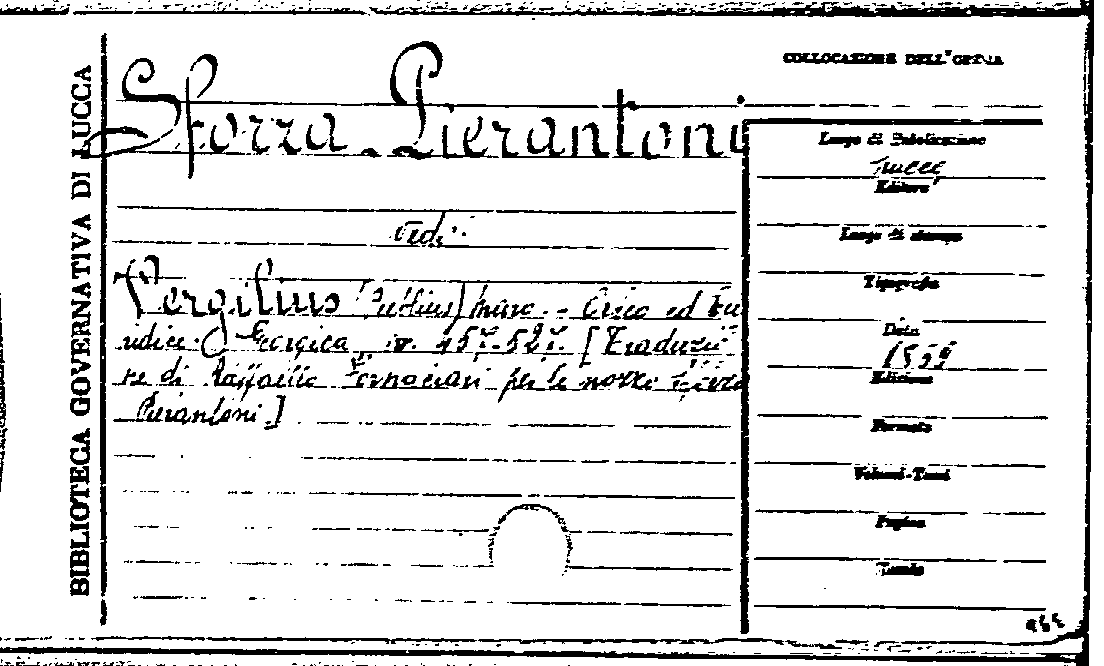 BIBLIOTECA GOVERNATIVA DI LUCCA
Sforza - Pierantoni
vedi:
Vergilius (Publius) Maro. - Orfeo ed Eu
ridice. Georgica, IV. 457-527. [Traduzio
ne di Raffaello Fornaciari per le nozze Sforza
Pierantoni.]
COLLOCAZIONE DELL'OPERA
Luogo di Pubblicazione
Lucca
Editore
Luogo di stampa
Tipografia
Data
1899
Edizione
Formato
Volumi-Tomi
Pagine
Tavole